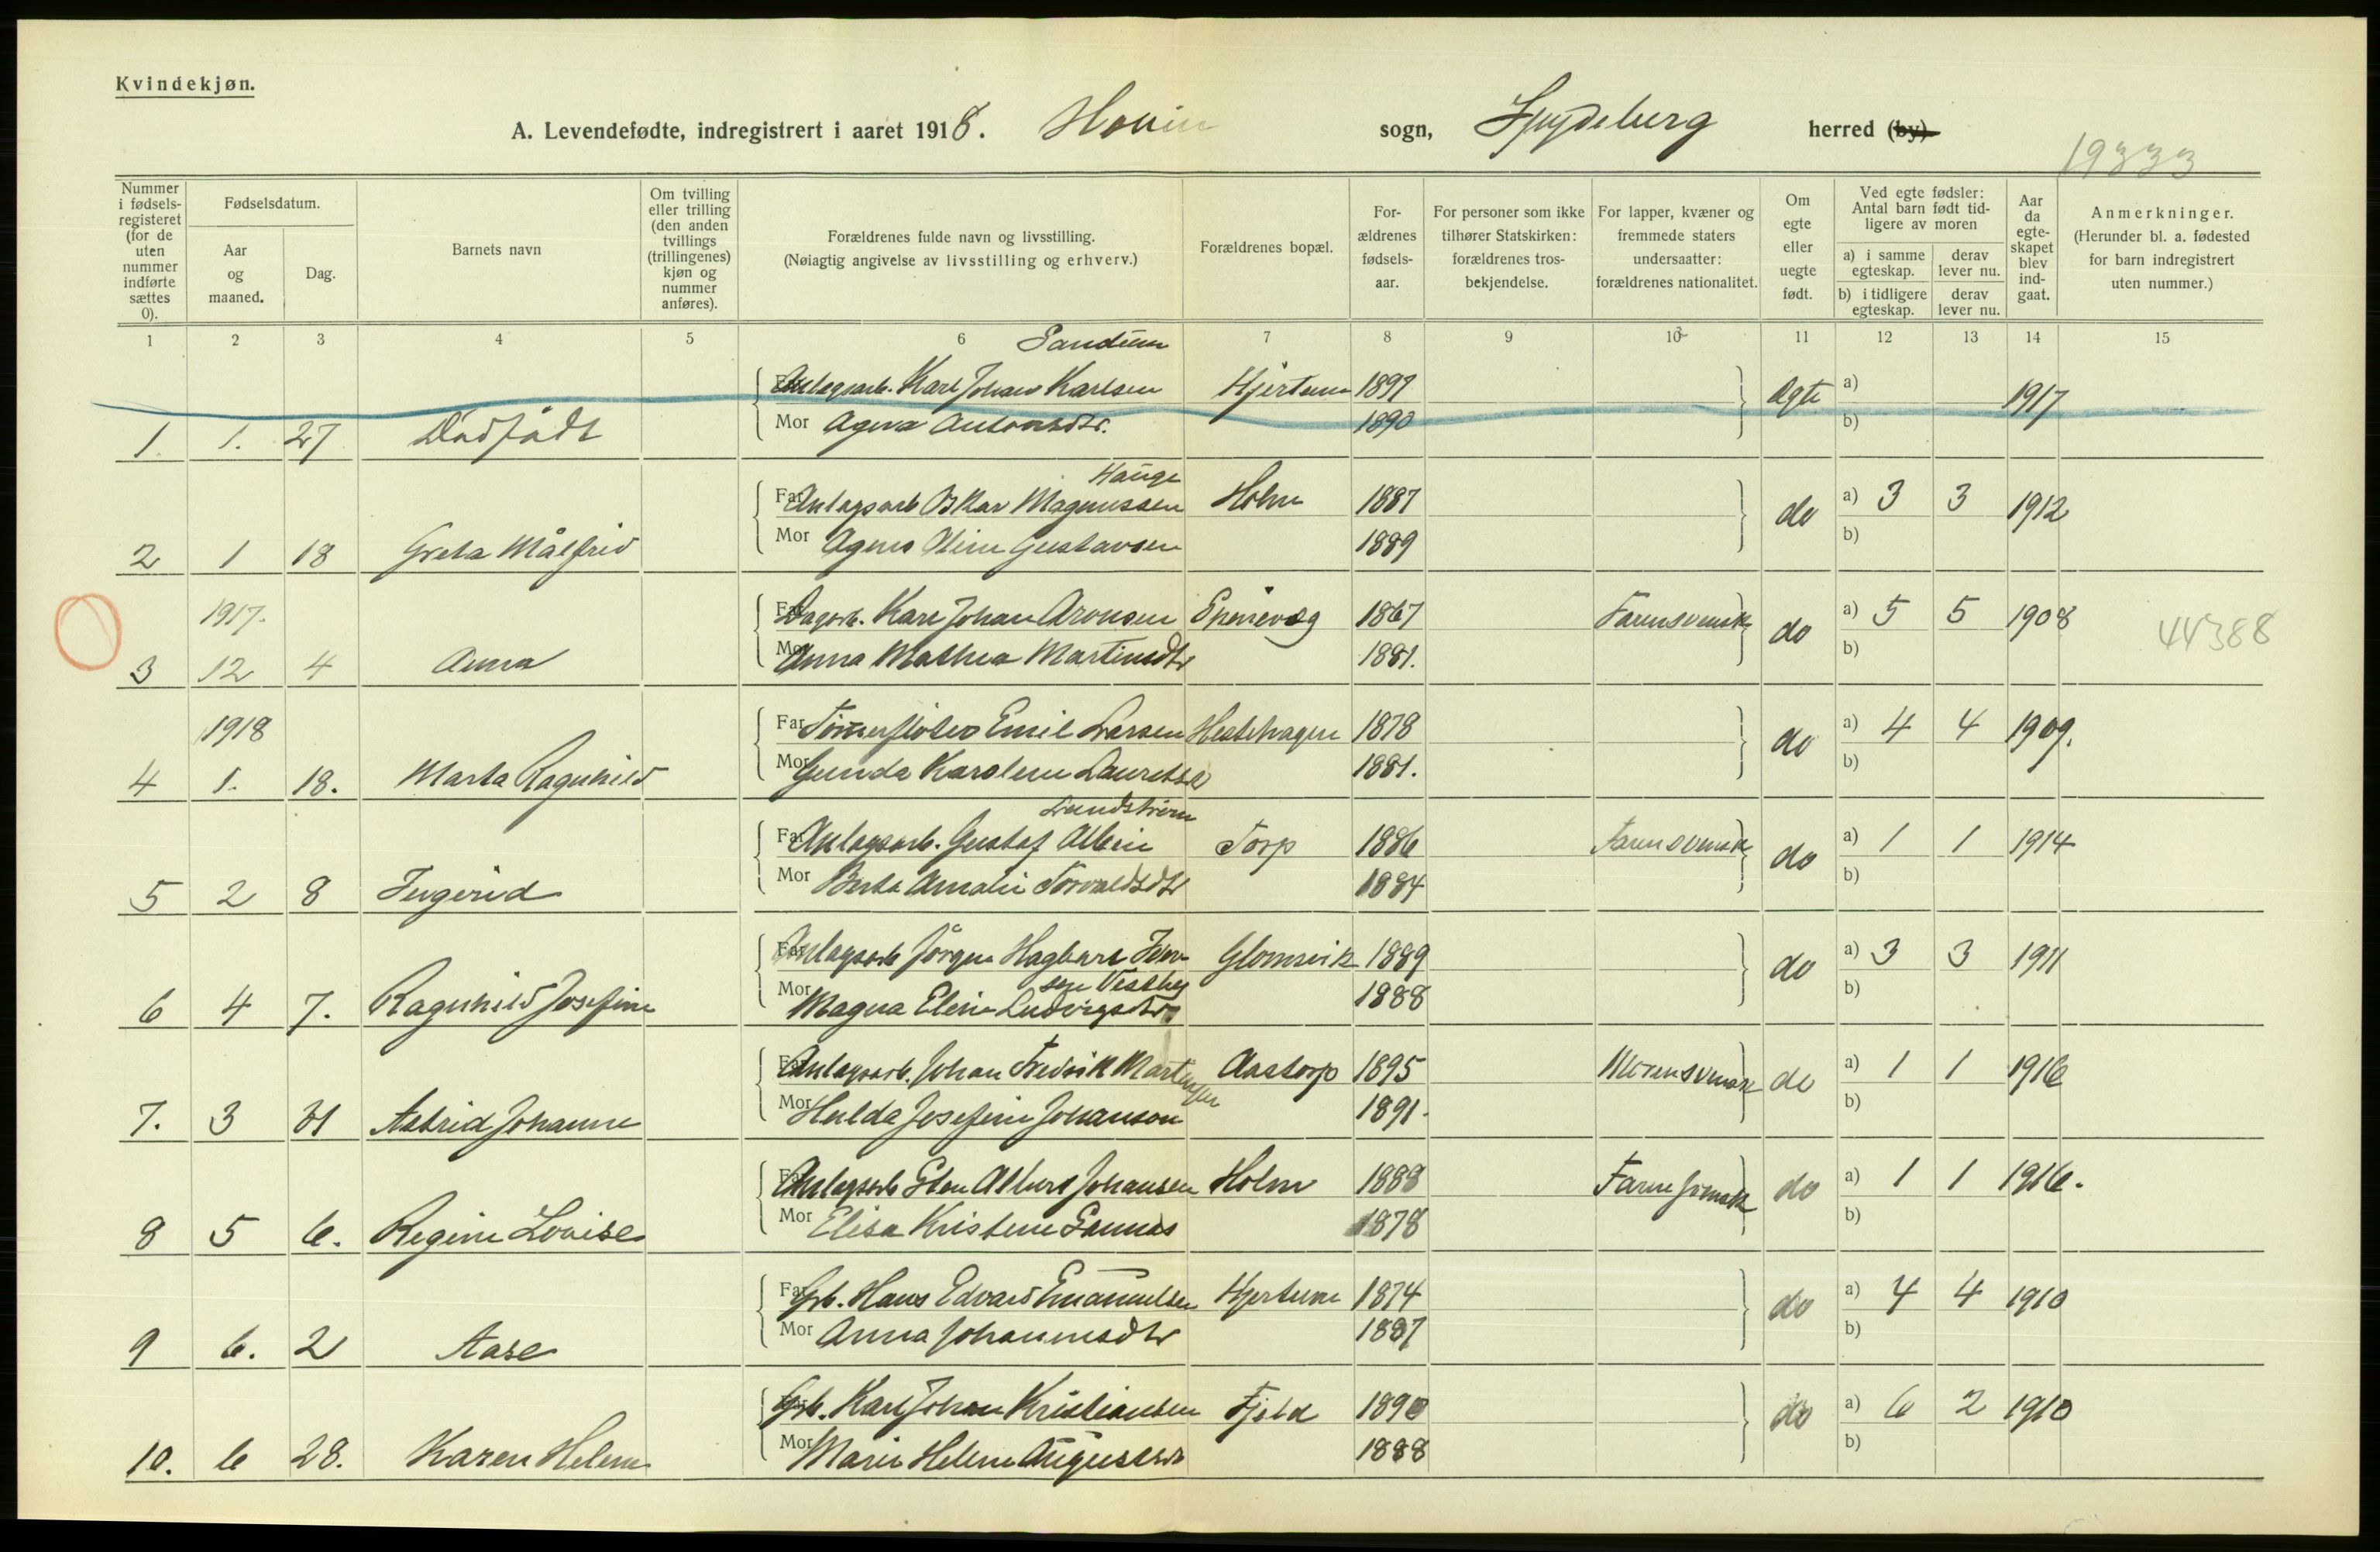 Kvindekjøn.
A. Levendefødte, indregistrert i aaret 1918. Hovin sogn, Spydeberg herred (by).
19333
Nummer i fødselsregisteret (for de uten nummer indførte sættes 0).
Fødselsdatum.
Aar og maaned.
Dag.
Barnets navn
Om tvilling eller trilling (den anden tvillings (trillingenes) kjøn og nummer anføres).
Forældrenes fulde navn og livsstilling.
(Nøiagtig angivelse av livsstilling og erhverv.)
Forældrenes bopæl.
Forældrenes fødselsaar.
For personer som ikke tilhører Statskirken: forældrenes trosbekjendelse.
For lapper, kvæner og fremmede staters undersaatter: forældrenes nationalitet.
Om egte eller uegte født.
Ved egte fødsler: Antal barn født tidligere av moren
a) i samme egteskap.
derav lever nu.
b) i tidligere egteskap.
derav lever nu.
Aar da egteskapet blev indgaat.
Anmerkninger.
(Herunder bl. a. fødested for barn indregistrert uten nummer.)
1 2 3 4 5 6 7 8 9 10 11 12 13 14 15
Sandum
Anlagsarb. Karl Johan Karlsen Hjertum 1891 Ægte a) 1917
1. 1. 27 Dødfødt Mor Agna Antonsdtr. 1890 b)
Hauge
Far Anlagsarb Oskar Magnussen Holm 1887 do a) 3 3 1912
2 1 18 Greta Målfrid Mor Agnes Oline Gustavsen 1889 b)
1917.
Far Dagarb. Karl Johan Aronsen 1867 Faren svensk do a) 5 5 1908 44388
3 12 4 Anna Mor Anna Mathea Martinsdtr 1881. b)
1918
Far Tømmerfløter Emil Larsen Hestehagen 1878 do a) 4 4 1909.
4 1. 18. Marta Ragnhild Mor Gunda Karoline Lauretsd 1881. b)
Lundstrøm
Far Anlagsarb. Gustaf Albin Torp 1886 Faren svensk do a) 1 1 1914
5 2 8 Ingerid Mor Berta Amalie Torvaldsdtr 1884 b)
Far Anlagsarb Jørgen Hagbart Iver Glomsvik 1889 do a) 3 3 1911
sen Vestby
6 4 7. Ragnhild Josefine Mor Magna Eline Ludvigsdtr. 1888 b)
Far Anlagsarb. Johan Fredrik Martinsen Aastorp 1895 Moren svensk do a) 1 1 1916
7. 3 31 Astrid Johanne Mor Hulda Josefine Johanson 1891. b)
Far Anlagsarb Sten Albert Johansen Holm 1888 Faren svensk do a) 1 1 1916.
8 5 6. Regine Lovise Mor Elisa Kristine Sannes 1878 b)
Far Grb. Hans Edvard Emanuelsen Hjertum 1874 do a) 4 4 1910
9 6. 21 Aase Mor Anna Johannesdtr 1887 b)
Grb. Karl Johan Kristiansen Fjeld 1890 do a) 6 2 1910
10. 6 28. Karen Helene Mor Marie Helene Augustdtr 1888 b)